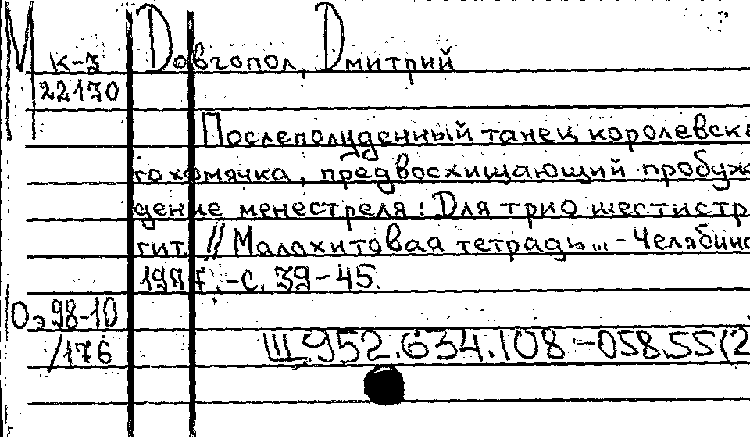 М Довгопол, Дмитрий
К-3
22170
Послеполуденный танец королевск
го хомячка, предвосхищающий пробуж
дение менестреля: Для трио шестистр
гит. // Малахитовая тетрадь... - Челябинс
1997. - С. 39-45.
Оэ98-10
/176
Щ.952.634.108-058.55(2